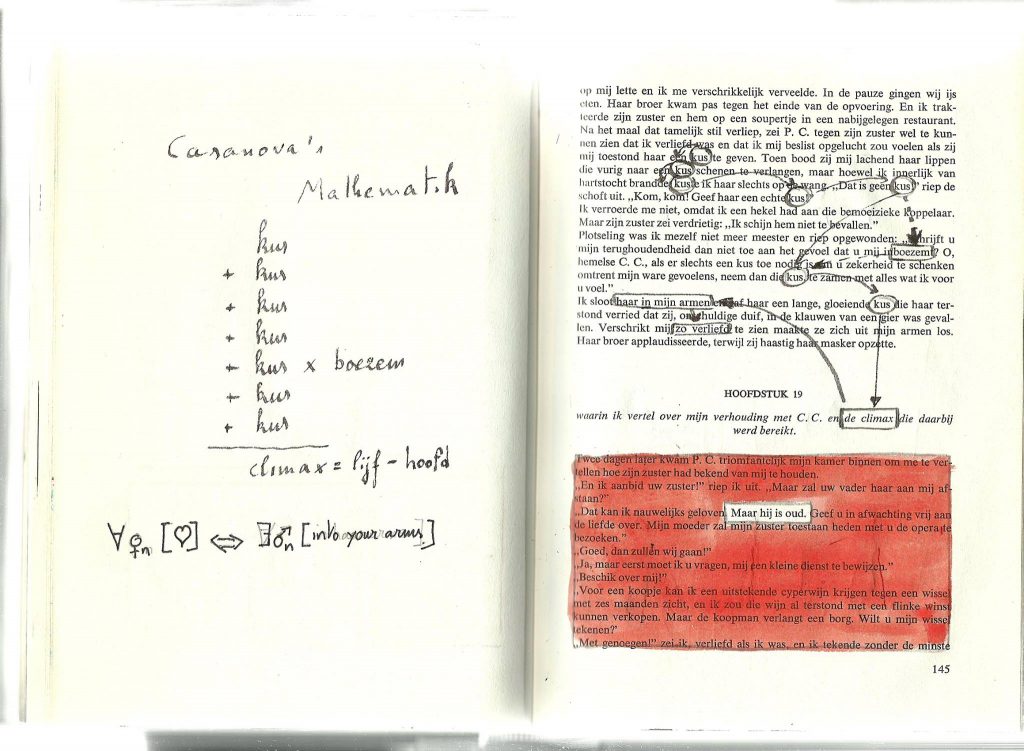 Casanova's
Mathematik
kus
+ kus
+ kus
+ kus
+ kus x boezem
+ kus
+ kus
climax = lijf - hoofd
∀♀n [♡] ⇔ ∃♂n [into your arms]
op mij lette en ik me verschrikkelijk verveelde. In de pauze gingen wij ijs
eten. Haar broer kwam pas tegen het einde van de opvoering. En ik trak-
teerde zijn zuster en hem op een soupertje in een nabijgelegen restaurant.
Na het maal dat tamelijk stil verliep, zei P. C. tegen zijn zuster wel te kun-
nen zien dat ik verliefd was en dat ik mij beslist opgelucht zou voelen als zij
mij toestond haar een kus te geven. Toen bood zij mij lachend haar lippen
die vurig naar een kus schenen te verlangen, maar hoewel ik innerlijk van
hartstocht brandde kuste ik haar slechts op de wang. „Dat is geen kus!” riep de
schoft uit. „Kom, kom! Geef haar een echte kus!
Ik verroerde me niet, omdat ik een hekel had aan die bemoeizieke koppelaar.
Maar zijn zuster zei verdrietig: „Ik schijn hem niet te bevallen.”
Plotseling was ik mezelf niet meer meester en riep opgewonden: „Schrijft u
mijn terughoudendheid dan niet toe aan het gevoel dat u mij inboezemt? O,
hemelse C. C., als er slechts een kus toe nodig is om u zekerheid te schenken
omtrent mijn ware gevoelens, neem dan die kus, te zamen met alles wat ik voor
u voel.”
Ik sloot haar in mijn armen en gaf haar een lange, gloeiende kus die haar ter-
stond verried dat zij, onschuldige duif, in de klauwen van een gier was geval-
len. Verschrikt mij zo verliefd te zien maakte ze zich uit mijn armen los.
Haar broer applaudisseerde, terwijl zij haastig haar masker opzette.
HOOFDSTUK 19
waarin ik vertel over mijn verhouding met C. C. en de climax die daarbij
werd bereikt.
Twee dagen later kwam P. C. triomfantelijk mijn kamer binnen om me te ver-
tellen hoe zijn zuster had bekend van mij te houden.
„En ik aanbid uw zuster!” riep ik uit. „Maar zal uw vader haar aan mij af-
staan?”
„Dat kan ik nauwelijks geloven. Maar hij is oud. Geef u in afwachting vrij aan
de liefde over. Mijn moeder zal mijn zuster toestaan heden met u de opera te
bezoeken.”
„Goed, dan zullen wij gaan!”
„Ja, maar eerst moet ik u vragen, mij een kleine dienst te bewijzen.”
„Beschik over mij!”
„Voor een koopje kan ik een uitstekende cyperwijn krijgen tegen een wissel
met zes maanden zicht, en ik zou die wijn al terstond met een flinke winst
kunnen verkopen. Maar de koopman verlangt een borg. Wilt u mijn wissel
tekenen?”
„Met genoegen!” zei ik, verliefd als ik was, en ik tekende zonder de minste
145